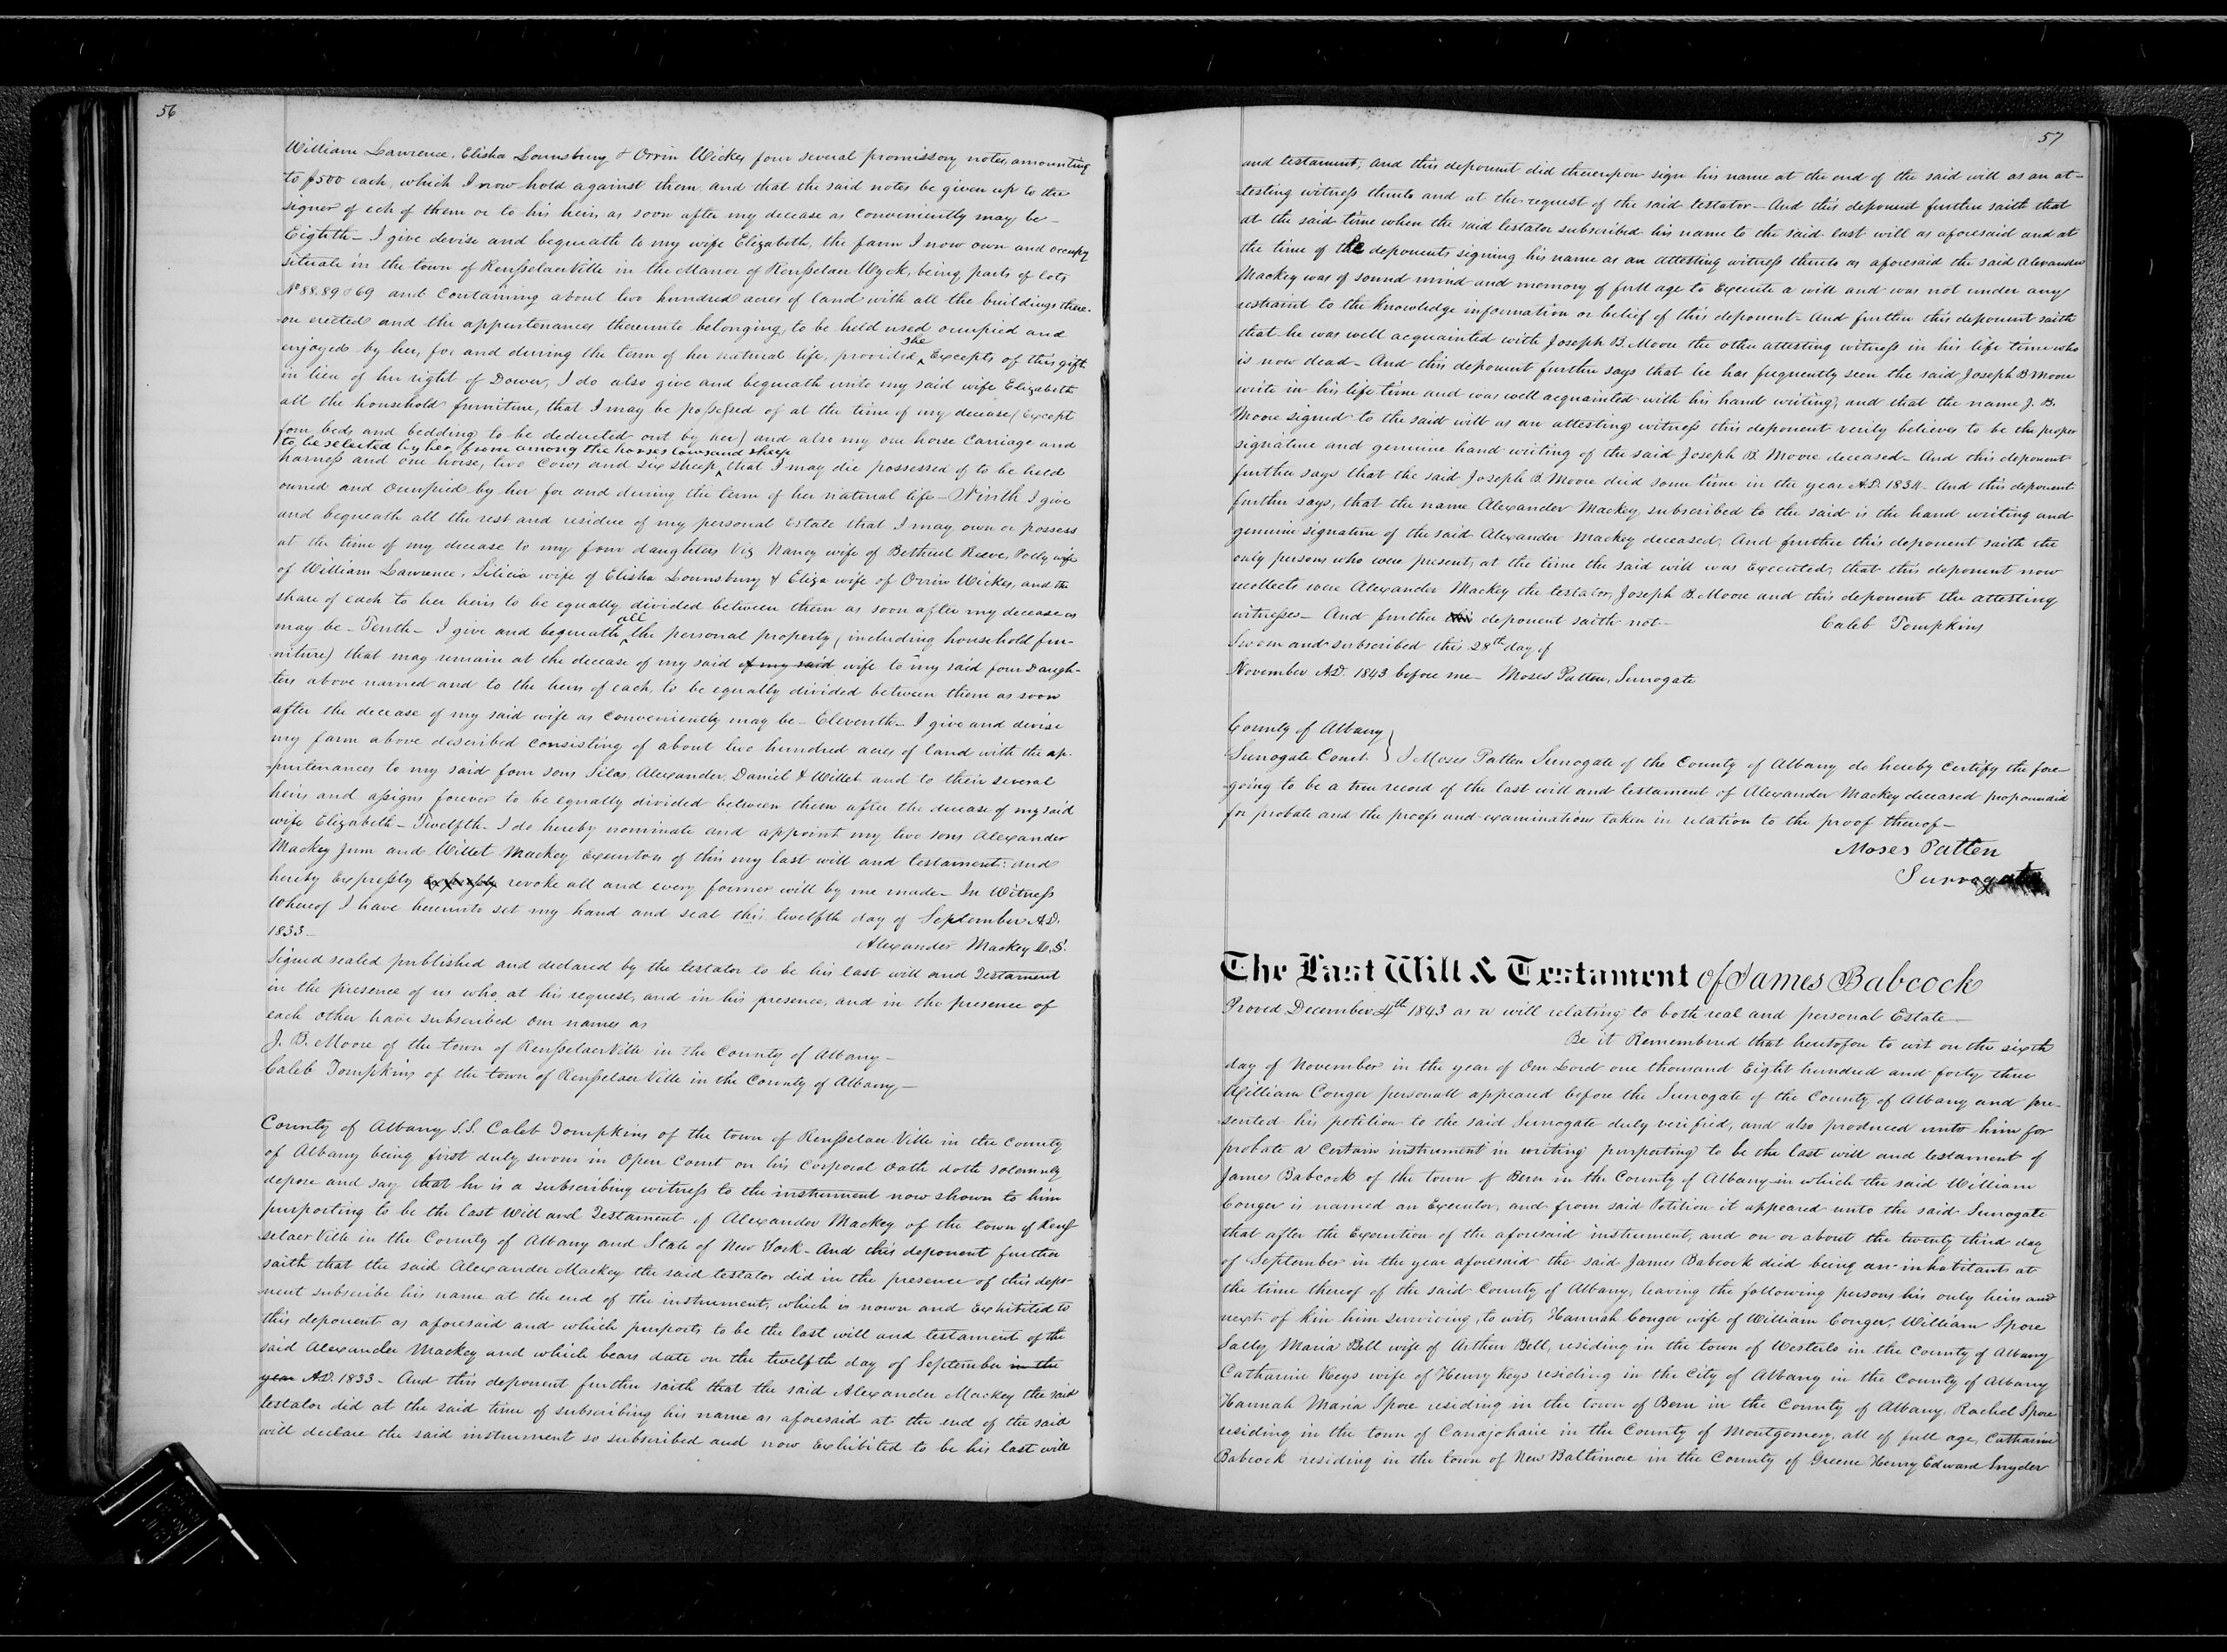 56
William Lawrence, Elisha Lounsbury & Orrin Wickes four several promissory notes, amounting
to $500 each, which I now hold against them, and that the said notes be given up to the
signer of ech of them or to his heirs as soon after my decease as conveniently may be-
Eighth- I give devise and bequeath to my wife Elizabeth, the farm I now own and occupy
situate in the town of RensselaerVille in the Manor of Rensselaer Wyck, being parts of lots
No 88.89 & 69 and containing about two hundred acres of land with all the buildings there-
-on erected and the appurtenances thereunto belonging, to be held used occupied and
she
enjoyed by her, for and during the term of her natural life, provided ^ Excepts of this gift
in lieu of her right of Dower, I do also give and bequeath unto my said wife Elizabeth
all the household furniture, that I may be possessed of at the time of my decease (Except
four beds and bedding to be deducted out by her) and also my one horse Carriage and
to be selected by her from among the horses cows and sheep
harness and one horse, two Cows and six sheep ^ that I may die possessed of to be held
owned and occupied by her for and during the term of her natural life- Ninth I give
and bequeath all the rest and residue of my personal Estate that I may own or possess
at the time of my decease to my four daughters Viz Nancy wife of Bethuel Reeve, Polly wife
of William Lawrence, Silicia wife of Elisha Lounsbury & Eliza wife of Orrin Wickes, and the
share of each to her heirs to be equally divided between them as soon after my decease as
all
may be- Tenth- I give and bequeath ^ the personal property (including household fur-
-niture) that may remain at the decease of my said of my said wife to my said four Daugh-
ters above named and to the heirs of each, to be equally divided between them as soon
after the decease of my said wife as conveniently may be- Eleventh- I give and devise
my farm above described consisting of about two hundred acres of land with the ap-
-purtenances to my said four sons Silas, Alexander, Daniel & Willet and to their several
heirs and assigns forever to be equally divided between them after the decease of my said
wife Elizabeth- Twelfth- I do hereby nominate and appoint my two sons Alexander
Mackey Junr and Willet Mackey Executors of this my last will and testament: and
hereby Expressly Expressly revoke all and every former will by me made- In Witness
Whereof I have hereunto set my hand and seal this twelfth day of September A.D.
1833-
Alexander Mackey L.S.
Signed sealed published and declared by the testator to be his last will and Testament
in the presence of us who, at his request, and in his presence, and in the presence of
each other have subscribed our names as
J. B. Moore of the town of RensselaerVille in the County of Albany-
Caleb Tompkins of the town of RensselaerVille in the County of Albany-
County of Albany S.S. Caleb Tompkins of the town of Rensselaer Ville in the County
of Albany being first duly sworn in Open Court on his Corporal oath doth solemnly
depose and say that he is a subscribing witness to the instrument now shown to him
purporting to be the last Will and Testament of Alexander Mackey of the town of Rens-
selaer Ville in the County of Albany and State of New York- And this deponent further
saith that the said Alexander Mackey the said testator did in the presence of this depo-
nent subscribe his name at the end of the instrument, which is nown and Exhibited to
this deponent as aforesaid and which purports to be the last will and testament of the
said Alexander Mackey and which bears date on the twelfth day of September in the
year A.D. 1833- And this deponent further saith that the said Alexander Mackey the said
testator did at the said time of subscribing his name as aforesaid at the end of the said
will declare the said instrument so subscribed and now Exhibited to be his last will
57
and testament; And this deponent did thereupon sign his name at the end of the said will as an at-
-testing witness thereto and at the request of the said testator- And this deponent further saith that
at the said time when the said testator subscribed his name to the said last will as aforesaid and at
the time of the deponents signing his name as an attesting witness thereto as aforesaid the said Alexander
Mackey was of sound mind and memory of full age to Execute a will and was not under any
restraint to the knowledge information or belief of this deponent- And further this deponent saith
that he was well acquainted with Joseph B. Moore the other attesting witness in his life time who
is now dead- And this deponent further says that he has frequently seen the said Joseph B Moore
write in his life time and was well acquainted with his hand writing, and that the name J. B.
Moore signed to the said will as an attesting witness this deponent verily believes to be the proper
signature and genuine hand writing of the said Joseph B. Moore deceased- And this deponent
further says that the said Joseph B. Moore died some time in the year A.D. 1834- And this deponent
further says, that the name Alexander Mackey, subscribed to the said is the hand writing and
genuine signature of the said Alexander Mackey deceased. And further this deponent saith the
only persons who were present, at the time the said will was Executed, that this deponent now
recollects were Alexander Mackey the testator, Joseph B. Moore and this deponent the attesting
witnesses- And further this deponent saith not-
Caleb Tompkins
Sworn and subscribed this 28th day of
November A.D. 1843 before me- Moses Patten, Surrogate
County of Albany
Surrogate Court } I Moses Patten Surrogate of the County of Albany do hereby certify the fore-
-going to be a true record of the last will and testament of Alexander Mackey deceased propounded
for probate and the proofs and examinations taken in relation to the proof thereof-
Moses Patten
Surrogate
The Last Will & Testament of James Babcock
Proved December 4th 1843 as a will relating to both real and personal Estate-
Be it Remembered that heretofore to wit on the sixth
day of November in the year of Our Lord one thousand Eight hundred and forty three
William Conger personall appeared before the Surrogate of the County of Albany and pre-
-sented his petition to the said Surrogate duly verified, and also produced unto him for
probate a Certain instrument in writing purporting to be the last will and testament of
James Babcock of the town of Bern in the County of Albany in which the said William
Conger is named an Executor, and from said Petition it appeared unto the said Surrogate
that after the Execution of the aforesaid instrument, and on or about the twenty third day
of September in the year aforesaid the said James Babcock died being an inhabitants at
the time thereof of the said County of Albany, leaving the following persons his only heirs and
next of kin him surviving, to wit, Hannah Conger wife of William Conger, William Spore
Sally Maria Bell wife of Arthur Bell, residing in the town of Westerlo in the County of Albany
Catharine Keys wife of Henry Keys residing in the City of Albany in the County of Albany
Hannah Maria Spore residing in the town of Bern in the County of Albany, Rachel Spore
residing in the town of Canajoharie in the County of Montgomery, all of full age, Catharine
Babcock residing in the town of New Baltimore in the County of Greene Henry Edward Snyder